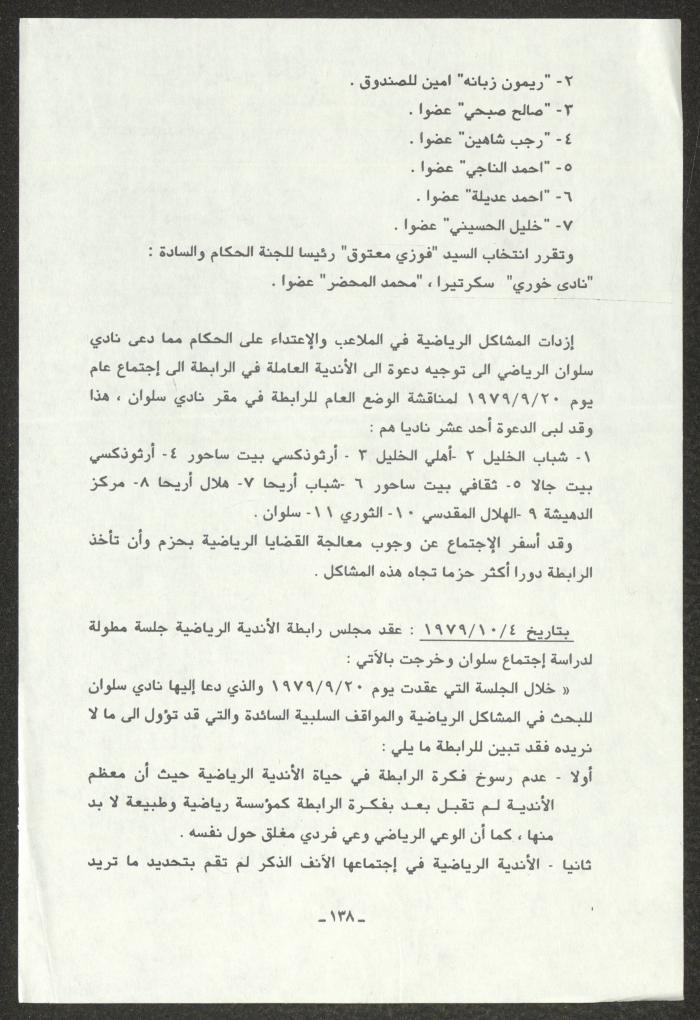 ٢- "ريمون زبانه" امين للصندوق .
٣- "صالح صبحي" عضوا .
٤- "رجب شاهين" عضوا .
٥- "احمد الناجي" عضوا .
٦- "احمد عديلة" عضوا .
٧- "خليل الحسيني" عضوا .
وتقرر انتخاب السيد "فوزي معتوق" رئيسا للجنة الحكام والسادة :
"نادى خوري" سكرتيرا ، "محمد المحضر" عضوا .
إزدات المشاكل الرياضية في الملاعب والإعتداء على الحكام مما دعى نادي
سلوان الرياضي الى توجيه دعوة الى الأندية العاملة في الرابطة الى إجتماع عام
يوم ١٩٧٩/٩/٢٠ لمناقشة الوضع العام للرابطة في مقر نادي سلوان ، هذا
وقد لبى الدعوة أحد عشر ناديا هم :
١- شباب الخليل ٢ -أهلي الخليل ٣ - أرثوذكسي بيت ساحور ٤- أرثوذكسي
بيت جالا ٥- ثقافي بيت ساحور ٦ -شباب أريحا ٧- هلال أريحا ٨- مركز
الدهيشة ٩ -الهلال المقدسي ١٠- الثوري ١١- سلوان .
وقد أسفر الإجتماع عن وجوب معالجة القضايا الرياضية بحزم وأن تأخذ
الرابطة دورا أكثر حزما تجاه هذه المشاكل .
بتاريخ ١٩٧٩/١٠/٤ : عقد مجلس رابطة الأندية الرياضية جلسة مطولة
لدراسة إجتماع سلوان وخرجت بالآتي :
« خلال الجلسة التي عقدت يوم ١٩٧٩/٩/٢٠ والذي دعا إليها نادي سلوان
للبحث في المشاكل الرياضية والمواقف السلبية السائدة والتي قد تؤول الى ما لا
نريده فقد تبين للرابطة ما يلي :
أولا - عدم رسوخ فكرة الرابطة في حياة الأندية الرياضية حيث أن معظم
الأندية لم تقبل بعد بفكرة الرابطة كمؤسسة رياضية وطبيعة لا بد
منها ، كما أن الوعي الرياضي وعي فردي مغلق حول نفسه .
ثانيا - الأندية الرياضية في إجتماعها الآنف الذكر لم تقم بتحديد ما تريد
ـ ١٣٨ ـ